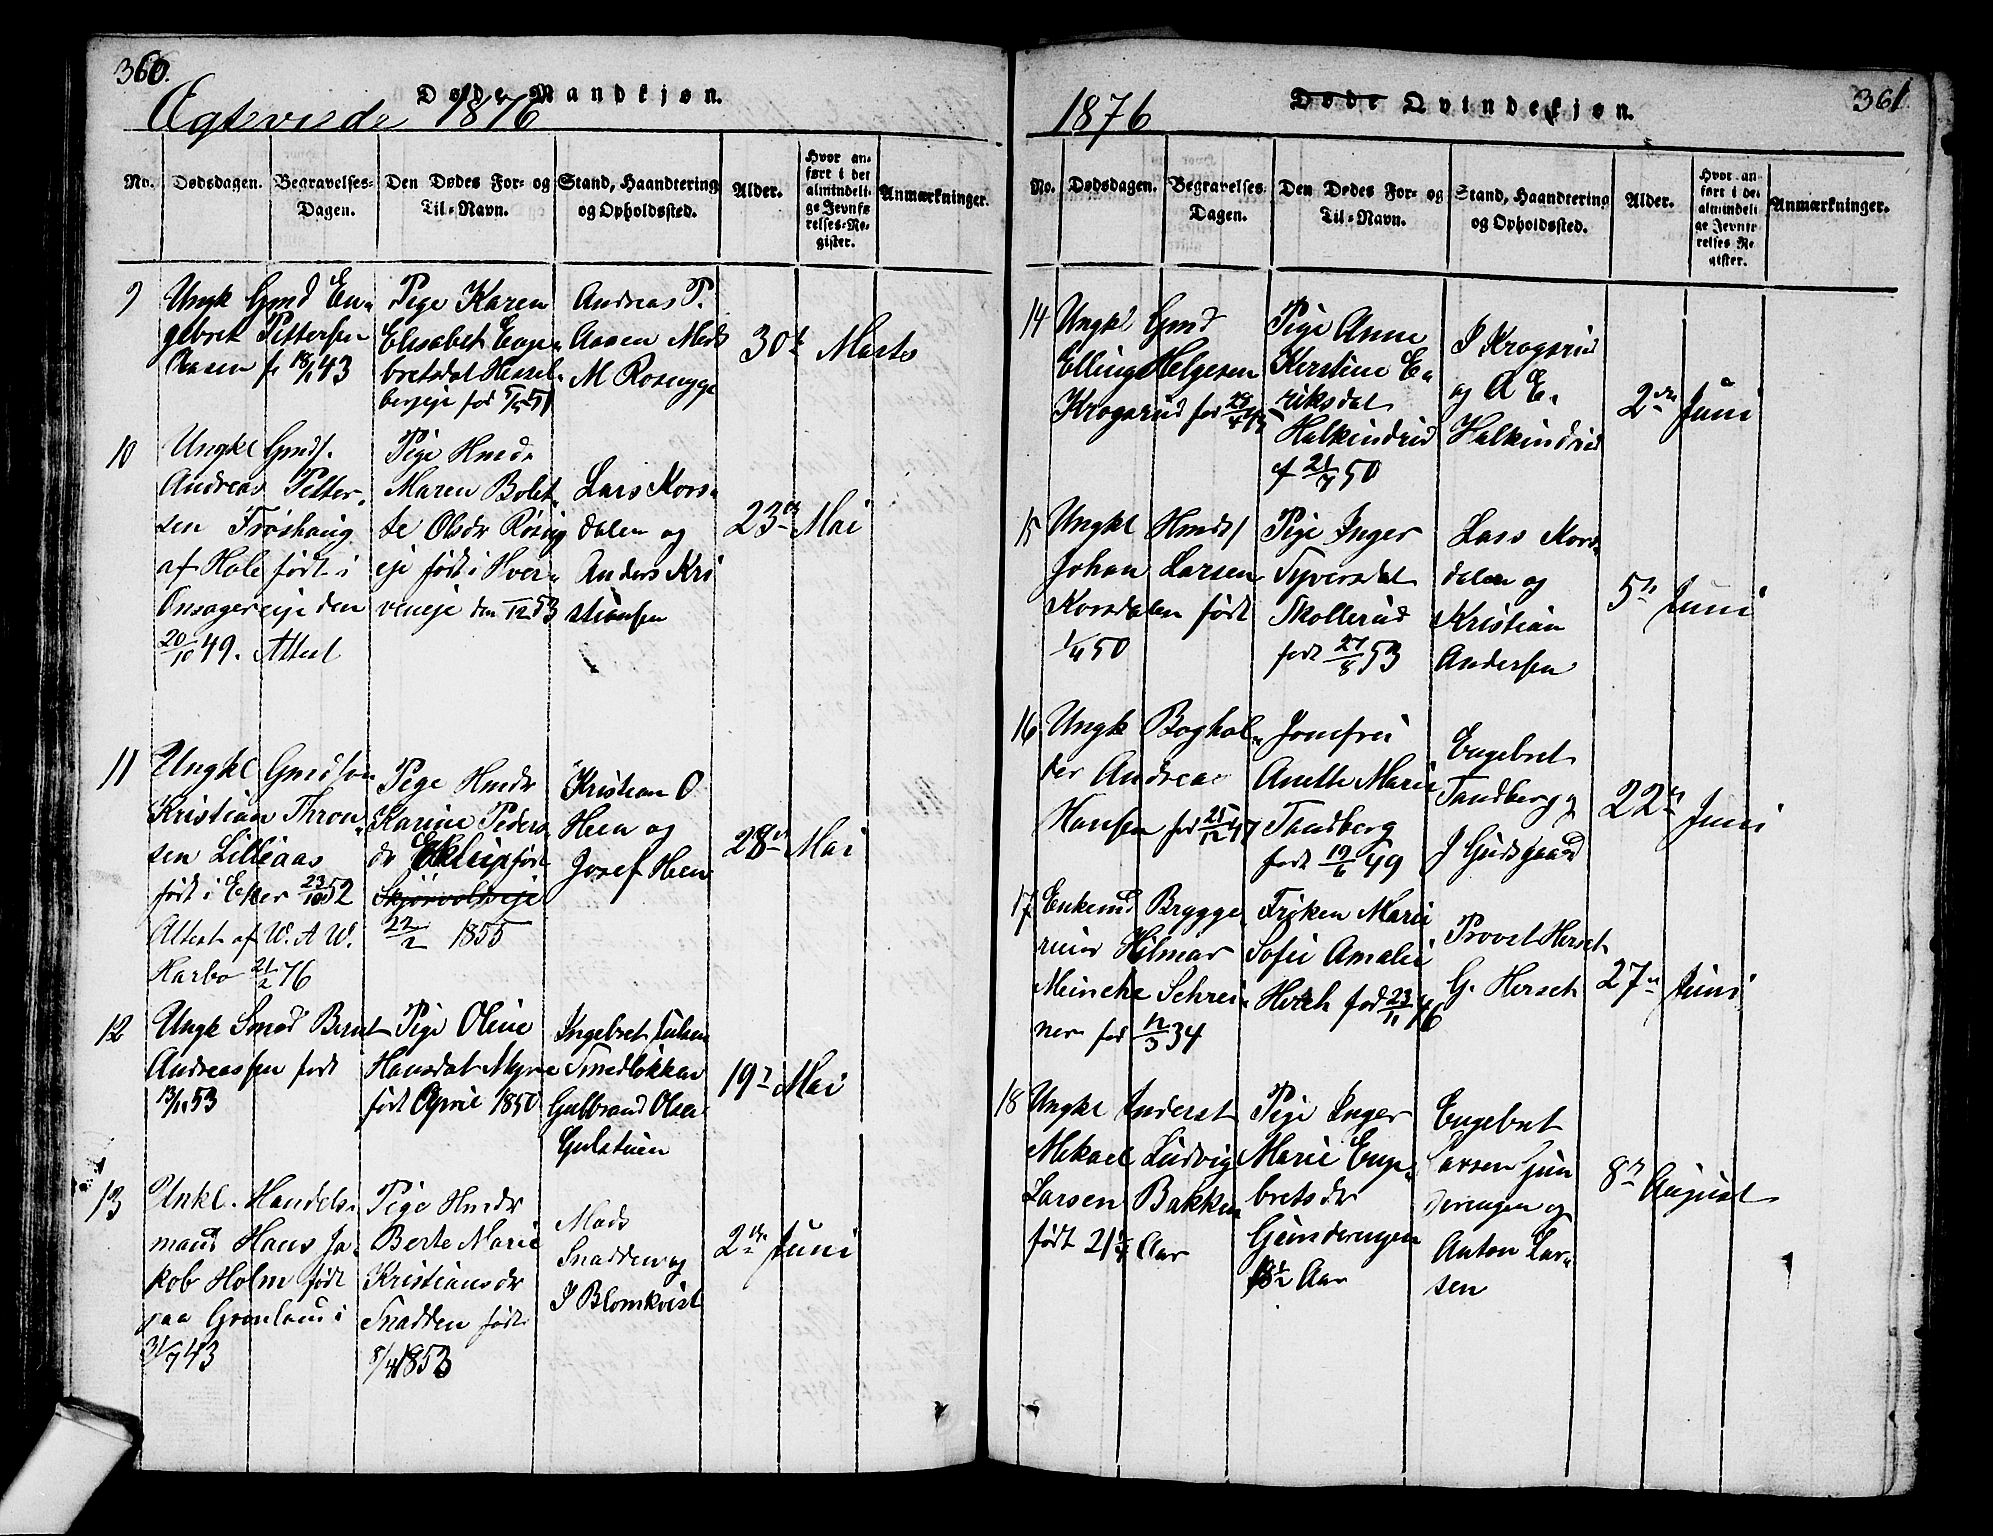 360.
Døde Mandkjøn.
Ægteviede 1876
No.
Dødsdagen.
Begravelses-
Dagen.
Den Dødes For- og
Til-Navn.
Stand, Haandtering
og Opholdssted.
Alder.
Hvor an-
ført i det
almindeli-
ge Jevnfø
relses-Re-
gister.
Anmærkninger.
9
Ungk Gmd En-
gebret Pettersen
Aasen f. 18/1 43
Pige Karen
Elisabet Enge-
bretsdat Hessel-
bergeie fød
Andreas P.
Aasen Mads
M Rosengge
30te Marts
10
Ungkl Gmds.
Andreas Petter-
sen Frøshaug
af Hole født i
Onsagereie den
20/10 49. Attest
Pige Hmd.
Maren Bolet-
te Olsdr Røsvig
eje født i Hver-
veneje den /12 53
Lars Kors-
dalen og
Anders Kri
stiansen
23de Mai
11
Ungkl Gmdsøn
Kristian Thron-
sen Lilleaas
født i Eker 23/10 52
Attest af W. A W.
Harbo 21/2 76
Pige Hmdr
Karine Peders-
dr Ekleip født
Skjørvoldseje
22/2 1855
Kristian O
Heen og
Josef Heen
28de Mai
12
Ungk Smed Bernt
Andreassen født
13/11 53
Pige Oline
Hansdat Myre
født April 1850
Ingebret Julsen
Smedløkken
Gulbrand Olsen
Gulstuen
19de Mai
13
Unkl. Handels-
mand Hans Ja-
kob Holm født
paa Grønland i
31/7 43
Pige Hmdr
Berte Marie
Kristiansdr
Snadden født
8/4 1853
Mads
Snadden og
J Blomkvist
2den Juni
361
Døde Qvindekjøn.
1876
No.
Dødsdagen.
Begravelses-
Dagen.
Den Dødes For- og
Til-Navn.
Stand, Haandtering
og Opholdssted.
Alder.
Hvor an-
ført i det
almindeli
ge Jevnfø
relses Re-
gister.
Anmærkninger.
14
Ungkl Gmd
Elling Helgesen
Krogsrud fød
Pige Anne
Kerstine E-
riksdat
Halkinrud
f 21/7 50
J Krogsrud
og A E.
Halkinrud
2den Juni
15
Ungkl Hmds/
Johan Larsen
Korsdalen født
1/4 50
Pige Inger
Syversdat
Skollerud
født 27/8 53
Lars Kors-
dalen og
Kristian
Andersen
5te Juni
16
Ungk Boghol-
der Andreas
Hansen fød 25/12 47
Jomfru
Anette Marie
Tandberg
født 19/6 49
Engebret
Tandberg og
J Gudsgaard
22de Juni
17
Enkemd Brygge
rieier Hilmar
Meincke Schrei-
ner fød 12/3 34
Frøken Marie
Sofie Amalie
Hersch fød 23/11 46
Provst Hersch
G. Hersch
27de Juni
18
Ungkl Inderst
Mikael Ludvig
Larsen Bakken
født 21 Aar
Pige Inger
Marie Enge-
bretsdr
Gunderengen
18 1/2 Aar
Engebret
Larsen Gun
derengen og
Anton Lar-
sen
8de August